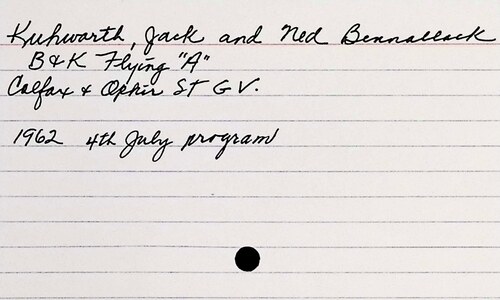 Kuhwarth, Jack and Ned Bennallack
B & K Flying "A"
Colfax & Ophir ST G V.
1962 4th July program